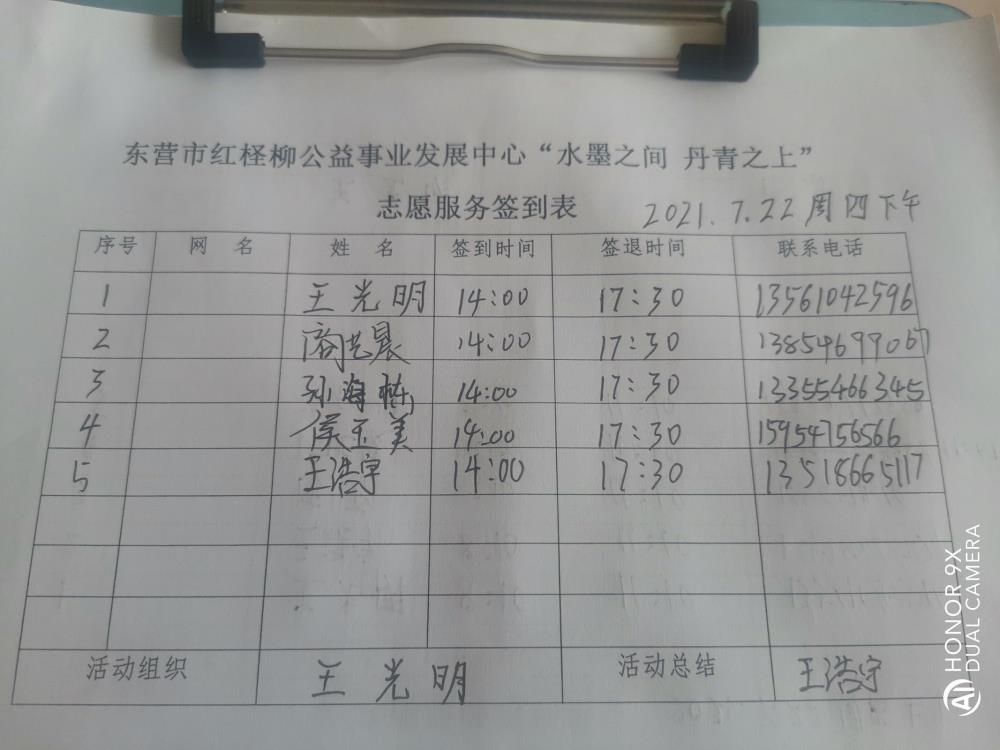 东营市红柽柳公益事业发展中心“水墨之间 丹青之上”
志愿服务签到表 2021.7.22 周四下午
序号 网 名 姓 名 签到时间 签退时间 联系电话
1 王光明 14:00 17:30 13561042596
2 商艺晨 14:00 17:30 13854699067
3 孙海栋 14:00 17:30 13355466345
4 侯玉美 14:00 17:30 15954756566
5 王浩宇 14:00 17:30 13518665117
活动组织 王光明 活动总结 王浩宇
HONOR 9X
DUAL CAMERA